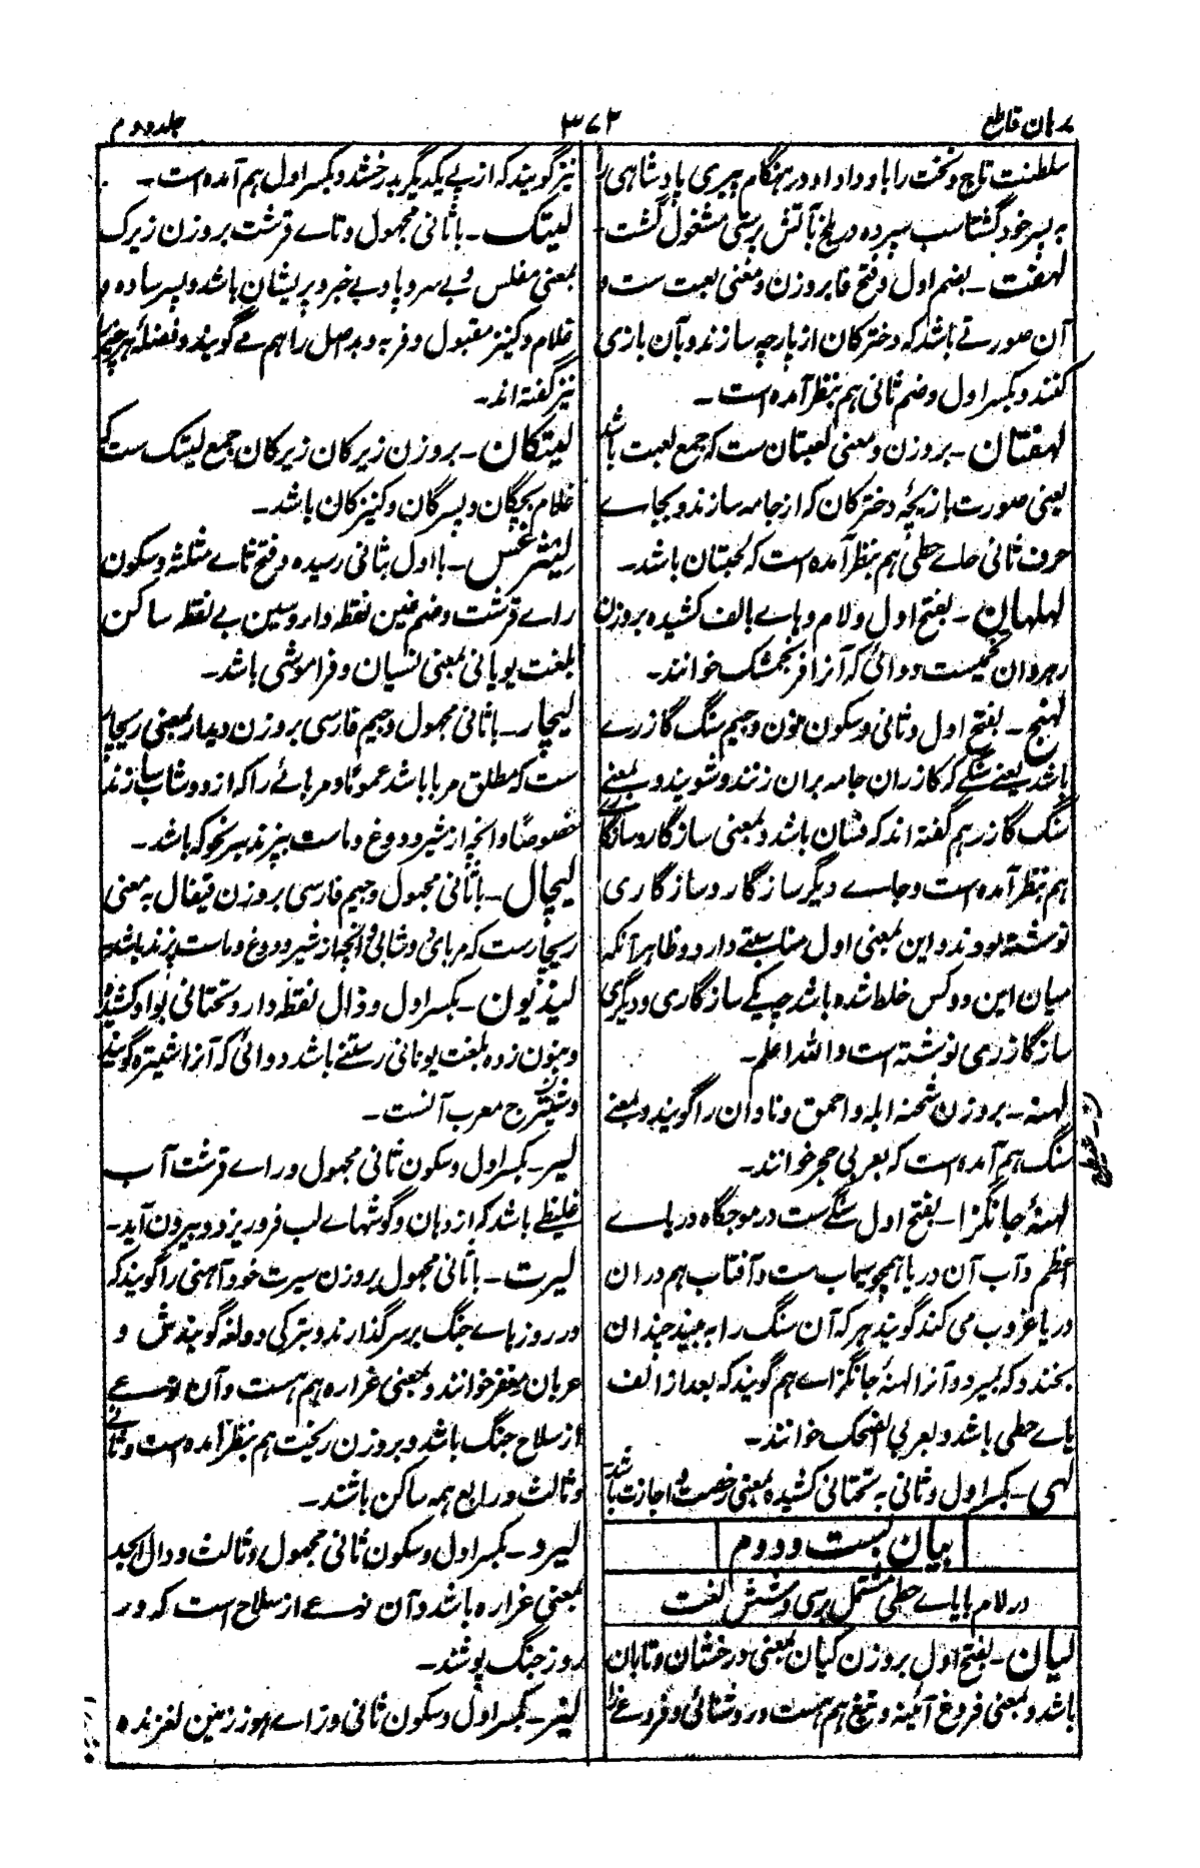 برهان قاطع
۳۷۲
جلد دوم
سلطنت تاج و تخت را باو داد او در هنگام پیری پادشاهی را
به پسر خود گشتاسب سپرده در بلخ بآتش پرستی مشغول گشت -
لهفت - بضم اول و فتح فا بروزن و معنی لعبت ست و
آن صورتے باشد که دخترکان از پارچه سازند و بآن بازی
کنند و بکسر اول و ضم ثانی هم بنظر آمده است -
لهفتان - بروزن و معنی لعبتان ست که جمع لعبت باشد
یعنی صورت بازیچهٔ دخترکان که از جامه سازند و بجاے
حرف ثانی حاے حطی هم بنظر آمده است که لحبتان باشد -
لهلهان - بفتح اول و لام و هاے بالف کشیده بروزن
رهروان تخمیست دوائی که آنرا فرنجمشک خوانند -
لهنج - بفتح اول و ثانی و سکون نون و جیم سنگ گازرے
باشد یعنے سنگے که گازران جامه بران زنند و شویند و بمعنے
سنگ گازر هم گفته اند که فسان باشد و بمعنی سازگار و سازگاری
هم بنظر آمده است و جاے دیگر سازگار و سازگاری
نوشته بودند و این بمعنی اول مناسبتے دارد و ظاهرا آنکه
میان این دو کس خلط شده باشد چه یکے سازگاری و دیگری
سازگازری نوشته است والله اعلم -
لهنه - بروزن شحنه ابله و احمق و نادان را گویند و بمعنے
سنگ هم آمده است که بعربی حجر خوانند -
لهنهٔ جانگزا - بفتح اول سنگے ست در موجگاه دریاے
اعظم و آب آن دریا همچو سیماب ست و آفتاب هم دران
دریا غروب می کند گویند هر که آن سنگ را به بیند چندان
بخندد که بمیرد و آنرا لهنهٔ جانگزاے هم گویند که بعد از الف
یاے حطی باشد و بعربی الضحک خوانند -
لهی - بکسر اول و ثانی به تحتانی کشیده بمعنی رخصت و اجازت باشد
بیان بست و دوم
در لام با یاے حطی مشتمل بر سی و شش لغت
لیان - بفتح اول بروزن کیان بمعنی درخشان و تابان
باشد و بمعنی فروغ آئینه و تیغ هم هست و روشنائی و فروغے را
نیز گویند که از پے یکدیگر بدرخشد و بکسر اول هم آمده است -
لیتک - باثانی مجهول و تاے قرشت بروزن زیرک
بمعنی مفلس و بے سر و پا و بے خبر و پریشان باشد و پسر ساده و
غلام و کنیز مقبول و فربه و بداصل را هم مے گویند و فضلهٔ هر چیز را
نیز گفته اند -
لیتکان - بروزن زیرکان زیرکان جمع لیتک ست که
غلام بچگان و پسرگان و کنیزکان باشد -
لیثرغس - با اول بثانی رسیده و فتح ثاے مثلثه و سکون
راے قرشت و ضم غین نقطه دار و سین بے نقطه ساکن
بلغت یونانی بمعنی نسیان و فراموشی باشد -
لیچار - باثانی مجهول و جیم فارسی بروزن دیدار بمعنی ریچار
ست که مطلق مربا باشد عموماً و مربائے را که از دوشاب پزند
خصوصاً و آنچه از شیر و دوغ و ماست بپزند بهر نحو که باشد -
لیچال - باثانی مجهول و جیم فارسی بروزن قیفال به معنی
ریچارست که مربائی دوشابی و آنچه از شیر و دوغ و ماست پزند باشد
لیذیون - بکسر اول و ذال نقطه دار و تحتانی بواو کشیده
و بنون زده بلغت یونانی رستنے باشد دوائی که آنرا شیتره گویند
و شیترج معرب آنست -
لیر - بکسر اول و سکون ثانی مجهول و راے قرشت آب
غلیظے باشد که از دهان و گوشهاے لب فرو ریزد و بیرون آید -
لیرت - باثانی مجهول بروزن سیرت خود آهنی را گویند که
در روزهاے جنگ بر سر گذارند و بترکی دولغه گویندش و
عربان مغفر خوانند و بمعنی غراره هم هست و آن نوعے
از سلاح جنگ باشد و بروزن ریخت هم بنظر آمده است و ثانی
و ثالث و رابع همه ساکن باشند -
لیرد - بکسر اول و سکون ثانی مجهول و ثالث و دال ابجد
بمعنی غراره باشد و آن نوعے از سلاح است که در
روز جنگ پوشند -
لیز - بکسر اول و سکون ثانی و زاے هوز زمین لغزنده